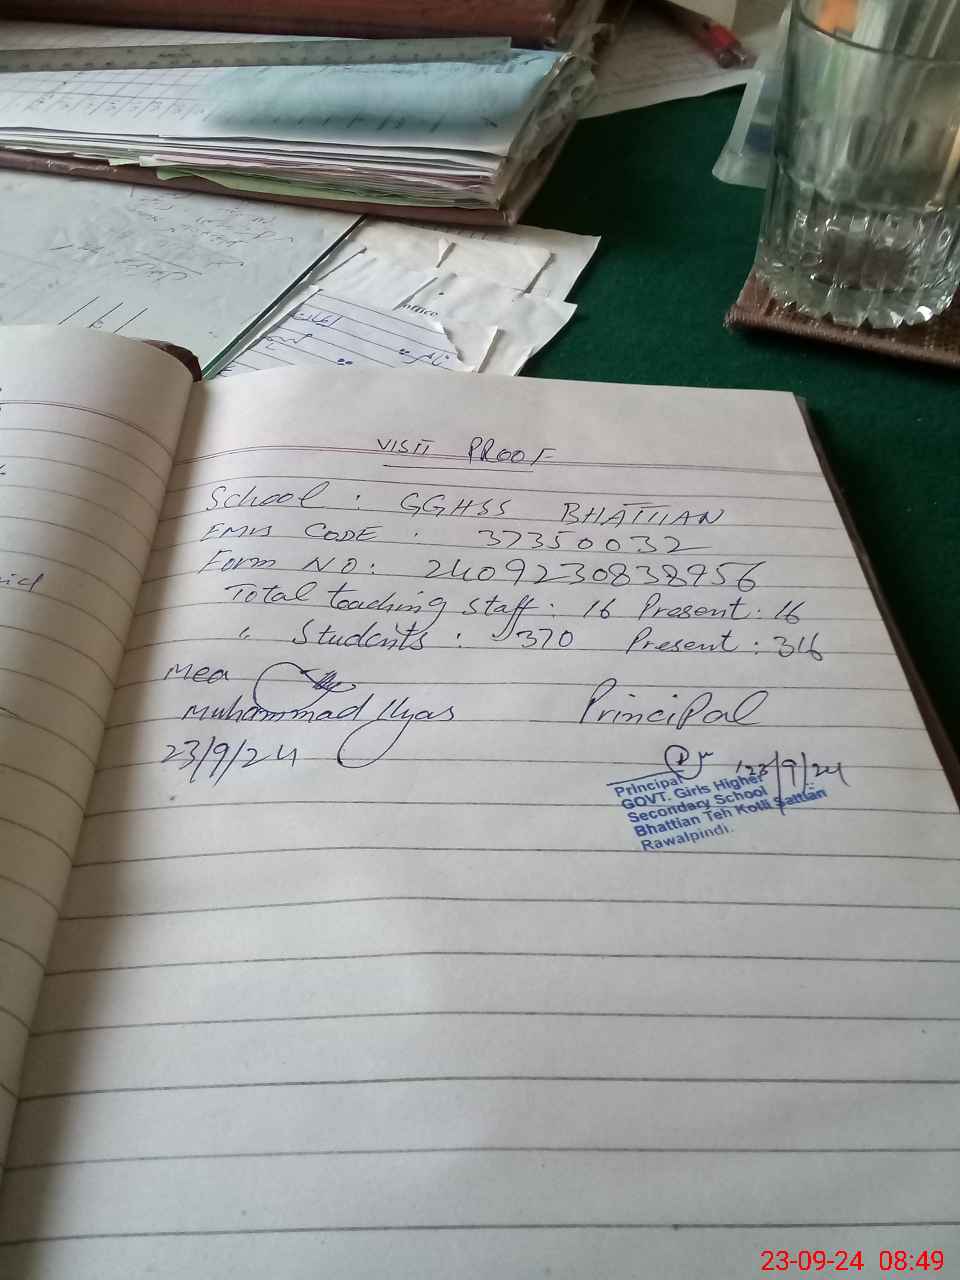 office
VISIT PROOF
School : GGHSS BHATTIAN
EMIS CODE : 37350032
Form NO: 2409230838956
Total teaching staff : 16 Present : 16
" Students : 370 Present : 316
Mea
Muhammad Ilyas
23/9/24
Principal
23/9/24
Principal
GOVT. Girls Higher
Secondary School
Bhattian Teh Kotli Sattian
Rawalpindi.
23-09-24 08:49